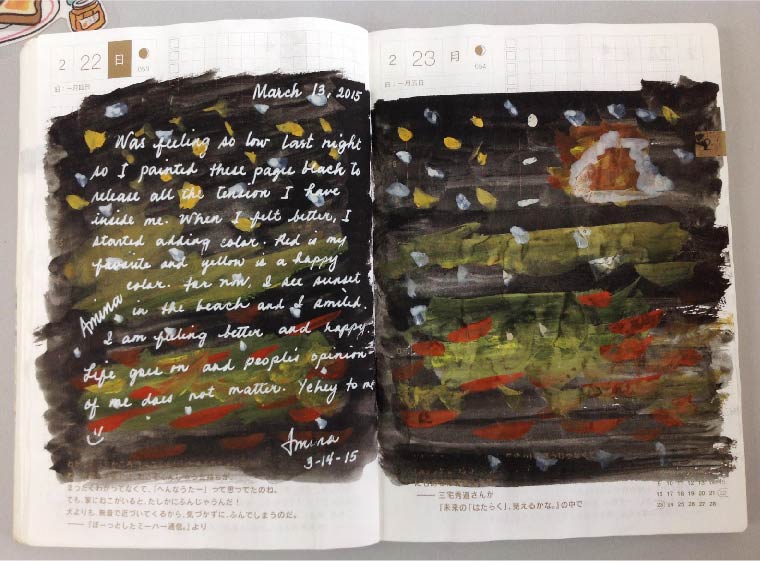 2 22 日
053
日:一月四日
March 13, 2015
Was feeling so low last night
so I painted these pages black to
release all the tension I have
inside me. When I felt better, I
started adding color. Red is my
favorite and yellow is a happy
color. For now, I see sunset
Amina in the beach and I smiled.
I am feeling better and happy.
Life goes on and people's opinion
of me does not matter. Yehey to me
Amina
3-14-15
まったくわかってなくて、「へんなうたー」って思ってたのね。
でも、家にねこがいると、たしかにふんじゃうんだ!
犬よりも、無音で近づいてくるから、気づかずに、ふんでしまうのだ。
──『ぼーっとしたミーハー通信。』より
2 23 月
054
日:一月五日
──三宅秀道さんが
『未来の「はたらく」、見えるかな。』の中で
15 16 17 18 19 20 21
24 25 26 27 28